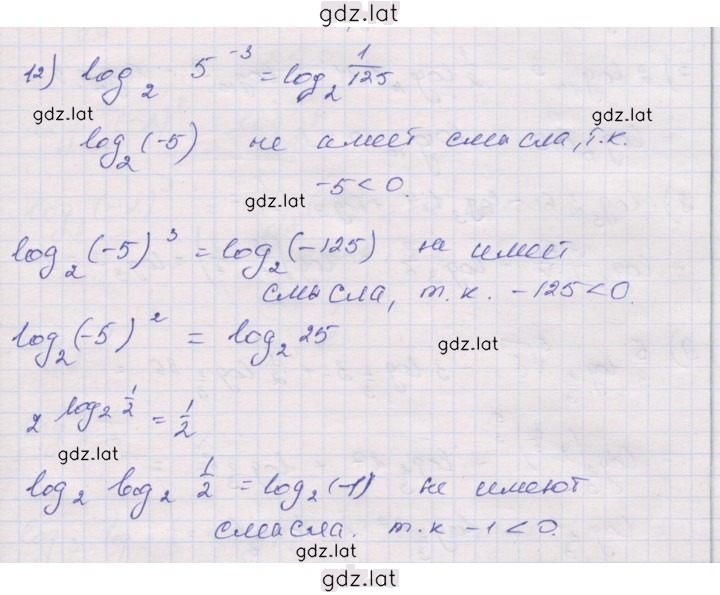 gdz.lat
12) log₂ 5⁻³ = log₂ 1/125
gdz.lat gdz.lat
log₂(-5) не имеет смысла, т.к.
-5<0.
gdz.lat
log₂(-5)³ = log₂(-125) не имеет
смысла, т.к. -125<0.
log₂(-5)² = log₂ 25
gdz.lat
2^(log₂ 1/2) = 1/2
gdz.lat
log₂ log₂ 1/2 = log₂(-1) не имеют
смысла. т.к -1<0.
gdz.lat
gdz.lat